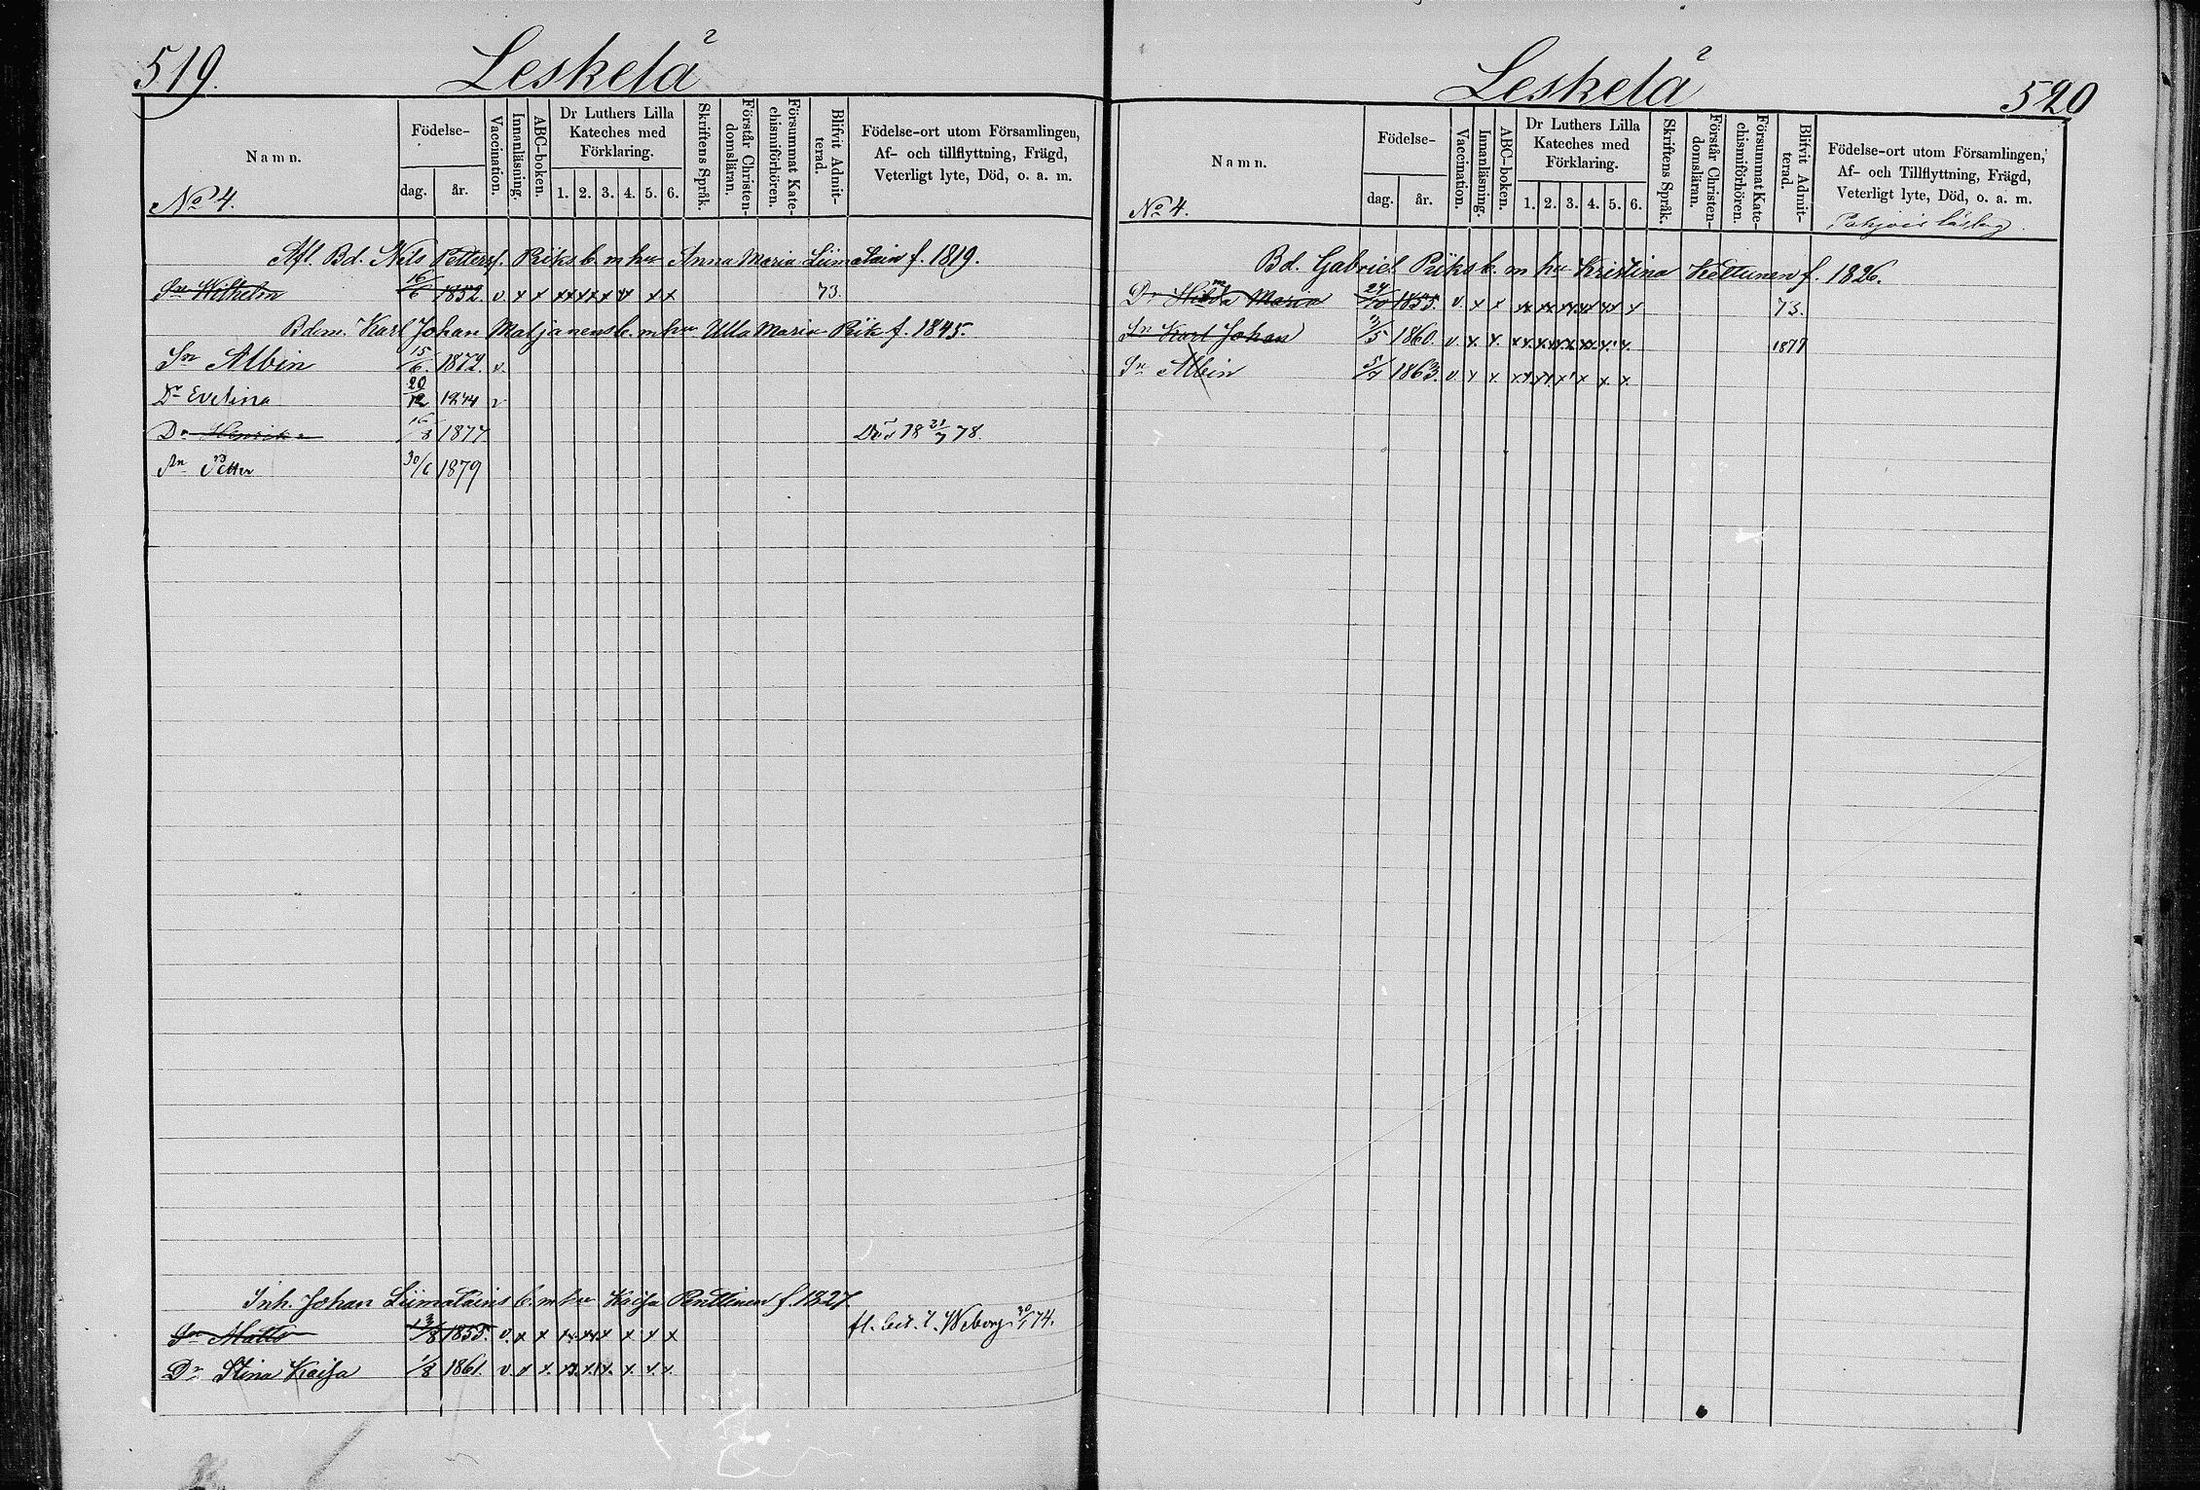 519.
Leskelä 2
Namn.
No 4.
Födelse-
dag.
år.
Vaccination.
Innanläsning.
ABC-boken.
Dr Luthers Lilla
Kateches med
Förklaring.
1. 2. 3. 4. 5. 6.
Skriftens Språk.
Förstår Christen-
domsläran.
Försummat Kate-
chismiförhören.
Blifvit Admit-
terad.
Födelse-ort utom Församlingen,
Af- och tillflyttning, Frägd,
Veterligt lyte, Död, o. a. m.
Afl. Bd. Nils Petters. Riiks b. m hu Anna Maria Liimatain f. 1819.
Sn Wilhelm 16/6 1852. v. x x x x x x x x 73.
Bdem. Karl Johan Matjanens b. m hu Ulla Maria Riik f. 1845.
Sn Albin 15/6 1872. v.
Dr Evelina 20/12 1874 v
Dr 16/8 1877 Död 18 21/7 78.
Sn Petter 30/6 1879
Inh. Johan Liimatains b. m hu Kaisa Penttinen f. 1827.
Sn Matts 13/8 1855. v. x x x x x x x x fl. bet. t. Wiborg 30/1 74.
Dr Stina Kaisa 1/8 1861. v x x. x x x x. x. x.
Leskelä 2
520
Namn.
No 4.
Födelse-
dag.
år.
Vaccination.
Innanläsning.
ABC-boken.
Dr Luthers Lilla
Kateches med
Förklaring.
1. 2. 3. 4. 5. 6.
Skriftens Språk.
Förstår Christen-
domsläran.
Försummat Kate-
chismiförhören.
Blifvit Admit-
terad.
Födelse-ort utom Församlingen,
Af- och Tillflyttning, Frägd,
Veterligt lyte, Död, o. a. m.
Bd. Gabriel Riiks b. m hu Kristina f. 1826.
Dr Maria 24/10 1855. v. x x x x x x x x 73.
Sn Karl Johan 1860. v. x. x. x x x x x. x. 1877
Sn Albin 5/4 1863. v. x x. x x x x x x